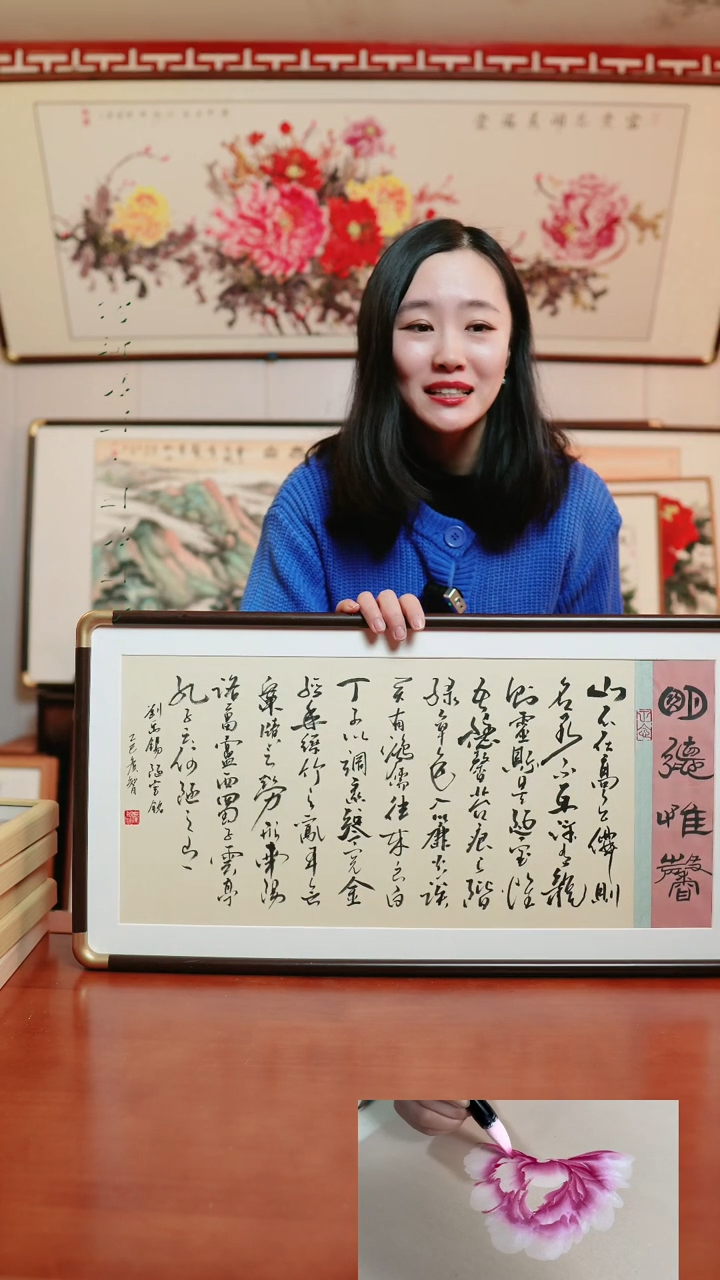 明德惟馨
山不在高有僊則
名水不在深有龍
則靈斯是陋室惟
吾德馨苔痕上階
綠草色入簾青談
笑有鴻儒往來無白
丁可以調素琴閱金
經無絲竹之亂耳無
案牘之勞形南陽
諸葛廬西蜀子雲亭
孔子云何陋之有
劉禹錫陋室銘
乙巳